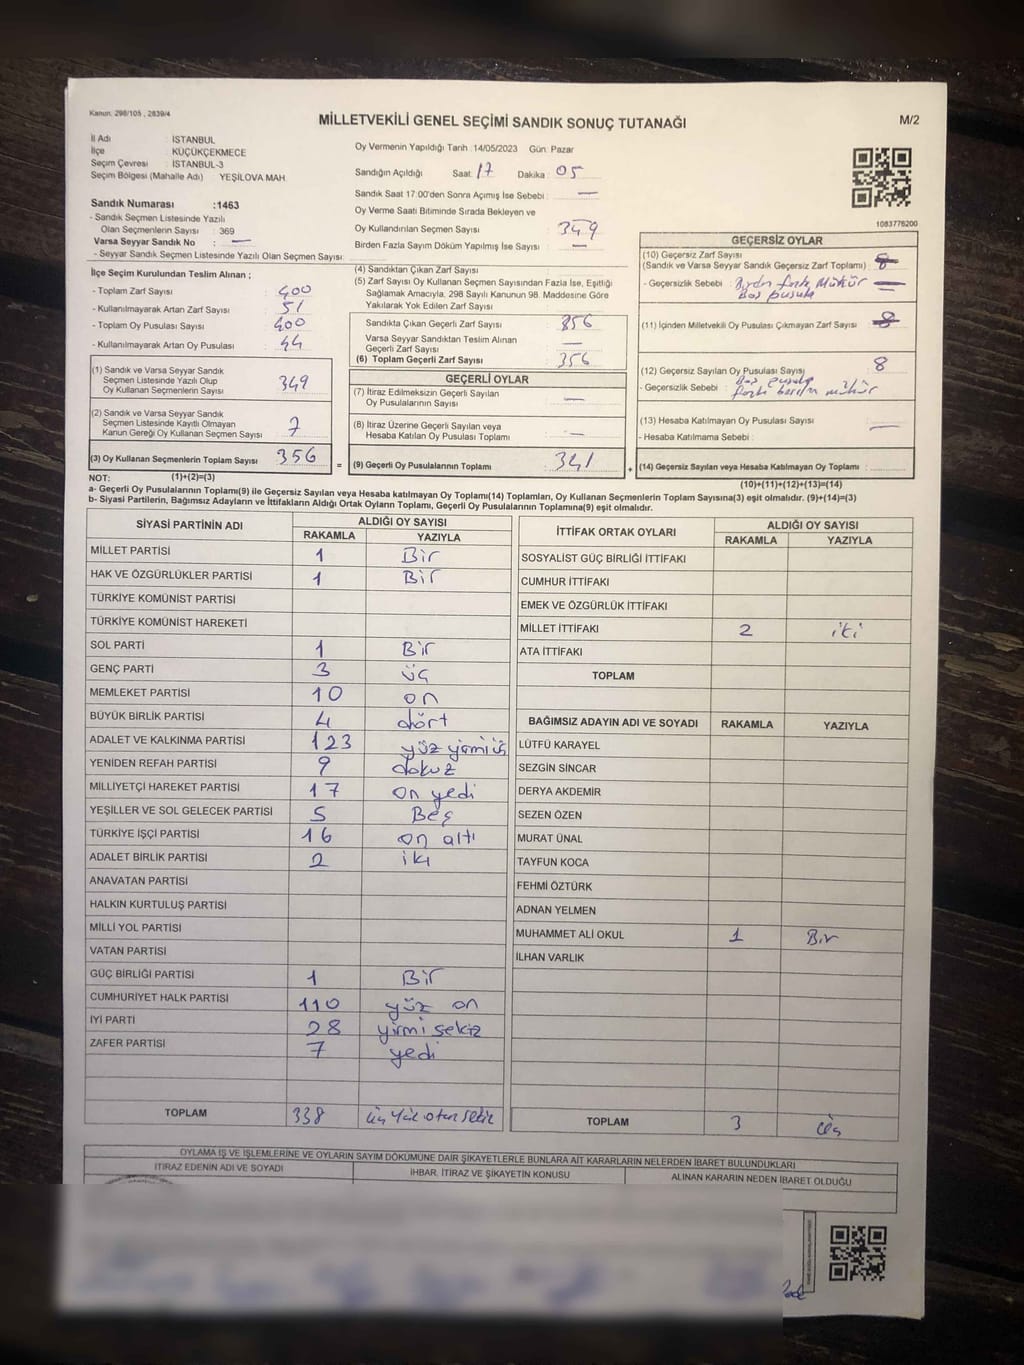 Kanun: 298/105 , 2839/4
MİLLETVEKİLİ GENEL SEÇİMİ SANDIK SONUÇ TUTANAĞI
M/2
İl Adı İSTANBUL
İlçe KÜÇÜKÇEKMECE
Seçim Çevresi İSTANBUL-3
Seçim Bölgesi (Mahalle Adı) YEŞİLOVA MAH.
Sandık Numarası :1463
- Sandık Seçmen Listesinde Yazılı
Olan Seçmenlerin Sayısı : 369
Varsa Seyyar Sandık No : —
- Seyyar Sandık Seçmen Listesinde Yazılı Olan Seçmen Sayısı:
Oy Vermenin Yapıldığı Tarih :14/05/2023 Gün: Pazar
Sandığın Açıldığı Saat: 17 Dakika : 05
Sandık Saat 17:00'den Sonra Açımış İse Sebebi : —
Oy Verme Saati Bitiminde Sırada Bekleyen ve
Oy Kullandırılan Seçmen Sayısı : 349
Birden Fazla Sayım Döküm Yapılmış İse Sayısı : —
1083776200
İlçe Seçim Kurulundan Teslim Alınan ;
- Toplam Zarf Sayısı : 400
- Kullanılmayarak Artan Zarf Sayısı : 51
- Toplam Oy Pusulası Sayısı : 400
- Kullanılmayarak Artan Oy Pusulası : 44
(1) Sandık ve Varsa Seyyar Sandık
Seçmen Listesinde Yazılı Olup
Oy Kullanan Seçmenlerin Sayısı 349
(2) Sandık ve Varsa Seyyar Sandık
Seçmen Listesinde Kayıtlı Olmayan
Kanun Gereği Oy Kullanan Seçmen Sayısı 7
(3) Oy Kullanan Seçmenlerin Toplam Sayısı 356
(4) Sandıktan Çıkan Zarf Sayısı :
(5) Zarf Sayısı Oy Kullanan Seçmen Sayısından Fazla İse, Eşitliği
Sağlamak Amacıyla, 298 Sayılı Kanunun 98. Maddesine Göre
Yakılarak Yok Edilen Zarf Sayısı
Sandıkta Çıkan Geçerli Zarf Sayısı : 356
Varsa Seyyar Sandıktan Teslim Alınan
Geçerli Zarf Sayısı : —
(6) Toplam Geçerli Zarf Sayısı : 356
GEÇERLİ OYLAR
(7) İtiraz Edilmeksizin Geçerli Sayılan
Oy Pusulalarının Sayısı : —
(8) İtiraz Üzerine Geçerli Sayılan veya
Hesaba Katılan Oy Pusulası Toplamı : —
= (9) Geçerli Oy Pusulalarının Toplamı : 341
GEÇERSİZ OYLAR
(10) Geçersiz Zarf Sayısı
(Sandık ve Varsa Seyyar Sandık Geçersiz Zarf Toplamı) : 8
- Geçersizlik Sebebi : Birden fazla Mühür —
Boş pusula
(11) İçinden Milletvekili Oy Pusulası Çıkmayan Zarf Sayısı : 8
(12) Geçersiz Sayılan Oy Pusulası Sayısı 8
- Geçersizlik Sebebi : Boş pusula
fazla basılan mühür
(13) Hesaba Katılmayan Oy Pusulası Sayısı : —
- Hesaba Katılmama Sebebi :
+ (14) Geçersiz Sayılan veya Hesaba Katılmayan Oy Toplamı :
NOT: (1)+(2)=(3)
(10)+(11)+(12)+(13)=(14)
a- Geçerli Oy Pusulalarının Toplamı(9) ile Geçersiz Sayılan veya Hesaba katılmayan Oy Toplamı(14) Toplamları, Oy Kullanan Seçmenlerin Toplam Sayısına(3) eşit olmalıdır. (9)+(14)=(3)
b- Siyasi Partilerin, Bağımsız Adayların ve İttifakların Aldığı Ortak Oyların Toplamı, Geçerli Oy Pusulalarının Toplamına(9) eşit olmalıdır.
SİYASİ PARTİNİN ADI ALDIĞI OY SAYISI
RAKAMLA YAZIYLA
MİLLET PARTİSİ 1 Bir
HAK VE ÖZGÜRLÜKLER PARTİSİ 1 Bir
TÜRKİYE KOMÜNİST PARTİSİ
TÜRKİYE KOMÜNİST HAREKETİ
SOL PARTİ 1 Bir
GENÇ PARTİ 3 üç
MEMLEKET PARTİSİ 10 on
BÜYÜK BİRLİK PARTİSİ 4 dört
ADALET VE KALKINMA PARTİSİ 123 yüz yirmi üç
YENİDEN REFAH PARTİSİ 9 dokuz
MİLLİYETÇİ HAREKET PARTİSİ 17 on yedi
YEŞİLLER VE SOL GELECEK PARTİSİ 5 Beş
TÜRKİYE İŞÇİ PARTİSİ 16 on altı
ADALET BİRLİK PARTİSİ 2 iki
ANAVATAN PARTİSİ
HALKIN KURTULUŞ PARTİSİ
MİLLİ YOL PARTİSİ
VATAN PARTİSİ
GÜÇ BİRLİĞİ PARTİSİ 1 Bir
CUMHURİYET HALK PARTİSİ 110 yüz on
İYİ PARTİ 28 yirmi sekiz
ZAFER PARTİSİ 7 yedi
TOPLAM 338 üç yüz otuz sekiz
İTTİFAK ORTAK OYLARI ALDIĞI OY SAYISI
RAKAMLA YAZIYLA
SOSYALİST GÜÇ BİRLİĞİ İTTİFAKI
CUMHUR İTTİFAKI
EMEK VE ÖZGÜRLÜK İTTİFAKI
MİLLET İTTİFAKI 2 iki
ATA İTTİFAKI
TOPLAM
BAĞIMSIZ ADAYIN ADI VE SOYADI RAKAMLA YAZIYLA
LÜTFÜ KARAYEL
SEZGİN SİNCAR
DERYA AKDEMİR
SEZEN ÖZEN
MURAT ÜNAL
TAYFUN KOCA
FEHMİ ÖZTÜRK
ADNAN YELMEN
MUHAMMET ALİ OKUL 1 Bir
İLHAN VARLIK
TOPLAM 3 üç
OYLAMA İŞ VE İŞLEMLERİNE VE OYLARIN SAYIM DÖKÜMÜNE DAİR ŞİKAYETLERLE BUNLARA AİT KARARLARIN NELERDEN İBARET BULUNDUKLARI
İTİRAZ EDENİN ADI VE SOYADI İHBAR, İTİRAZ VE ŞİKAYETİN KONUSU ALINAN KARARIN NEDEN İBARET OLDUĞU